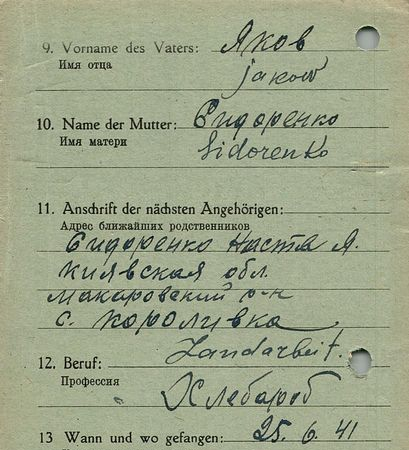 9. Vorname des Vaters: Яков
Имя отца
jakow
10. Name der Mutter: Сидоренко
Имя матери
Sidorenko
11. Anschrift der nächsten Angehörigen:
Адрес ближайших родственников
Сидоренко Настя Я.
Киявская обл.
Макаровский р-н
с. Короливка
12. Beruf: Landarbeit.
Профессия
Хлебароб
13 Wann und wo gefangen: 25. 6. 41